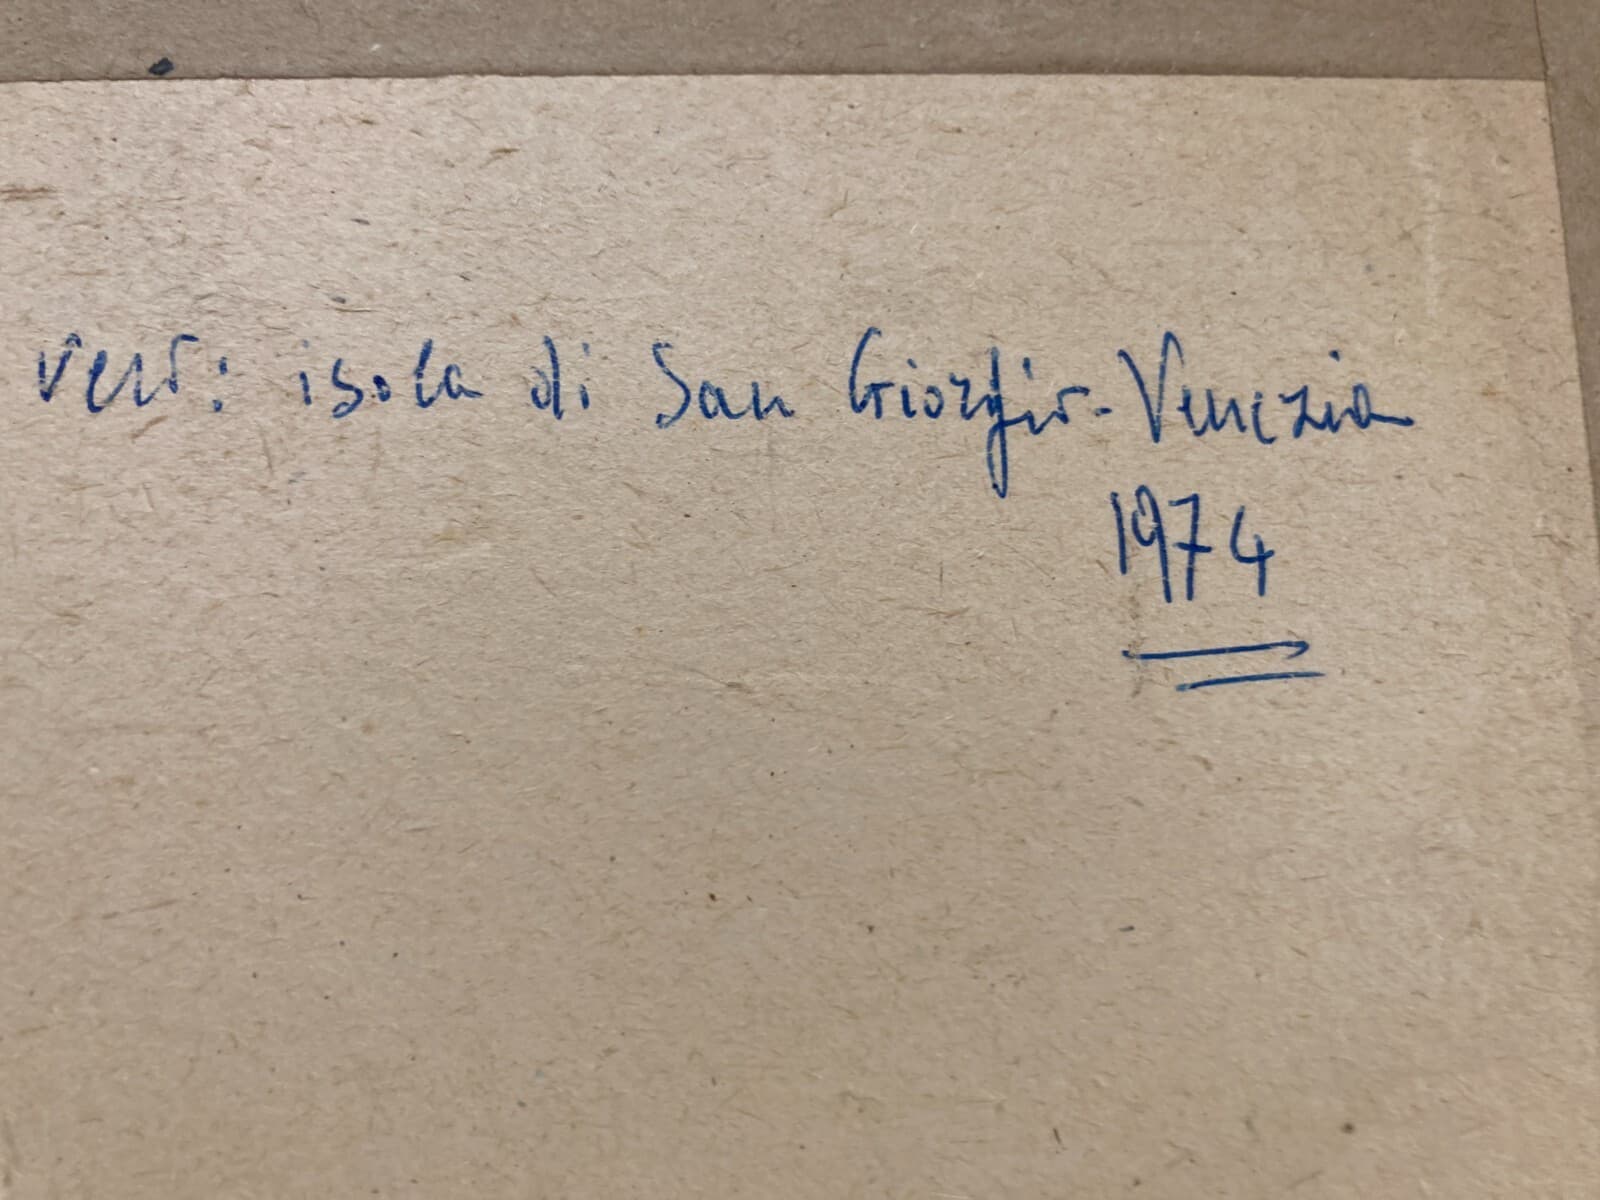 vers: isola di San Giorgio - Venezia
1974